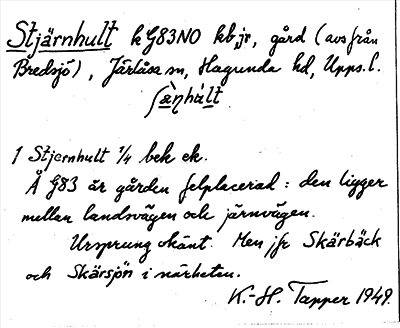 Stjärnhult k G83NO kb, jr, gård (avs från
Bredsjö), Järlåsa sn, Hagunda hd, Upps. l.
ʃæ̀ṇhùlt
1 Stjernhult 1/4 bek ek.
Å G83 är gården felplacerad: den ligger
mellan landsvägen och järnvägen.
Ursprung okänt. Men jfr Skärbäck
och Skärsjön i närheten.
K.-H. Tapper 1949.